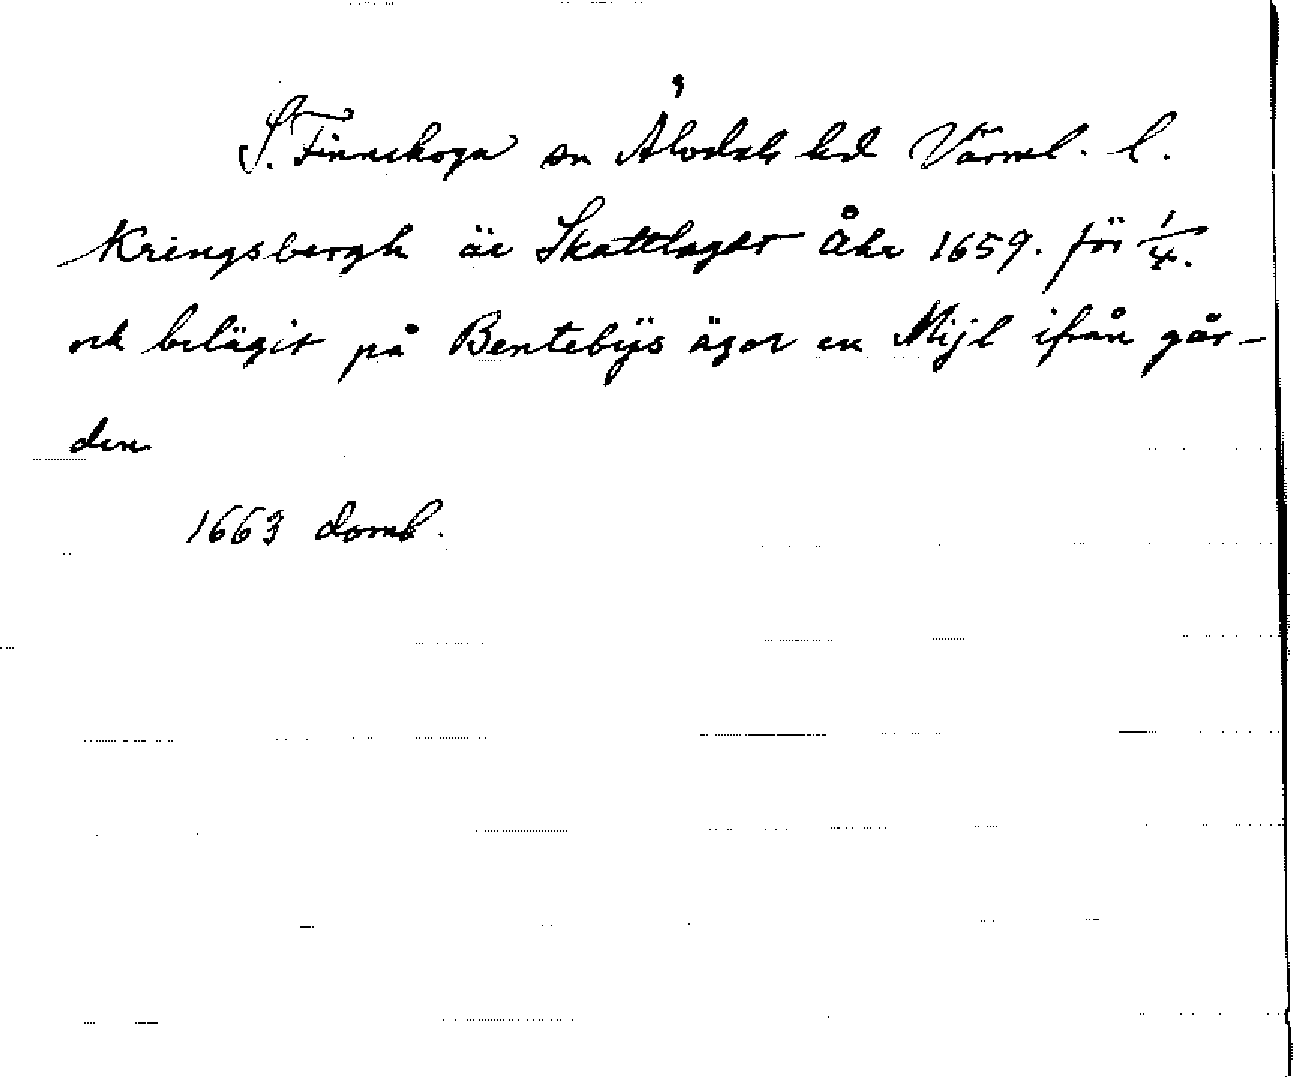 S. Finnskoga sn Älvdals hd Värml. l.
Kringsbergh är Skattlagt Åhr 1659. för 1/4.
och belägit på Bentebÿs ägor en Mijl ifrån går-
den
1663 domb.